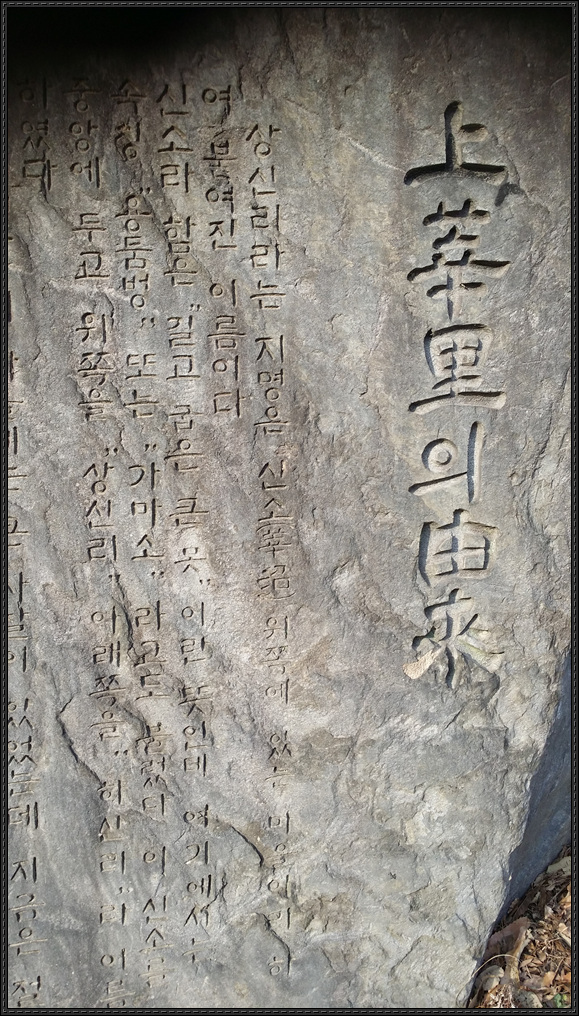 上莘里의 由來
상신리라는 지명은 신소莘沼 위쪽에 있는 마을이라 하
여 붙여진 이름이다
신소라 함은 "길고 굽은 큰 못"이란 뜻인데 여기에서는
속칭 "용둠벙" 또는 "가마소"라고도 불렀다 이 신소를
중앙에 두고 위쪽을 "상신리" 아래쪽을 "하신리"라 이름
하였다
큰 사찰이 있었는데 지금은